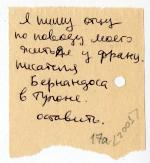 Я пишу отцу
по поводу моего
житья у франц.
писателя
Бернандоса
в Тулоне.
оставить.
17а (2005)